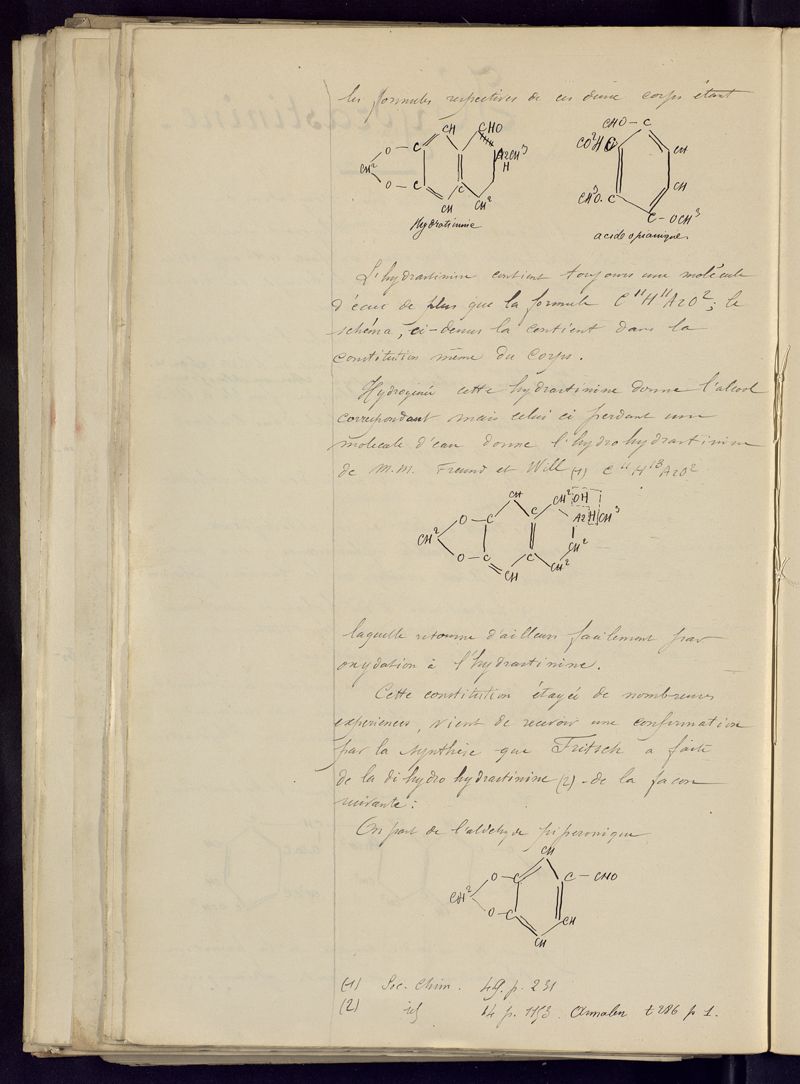 les formules respectives de ces deux corps étant
CH CHO
O C
CH² AzCH³
H
O C C
CH CH²
Hydrastinine
CHO - C
CO²H C CH
CH³O. C CH
C - OCH³
acide opianique.
L'hydrastinine contient toujours une molécule
d'eau de plus que la formule C¹¹H¹¹AzO²; le
schéma, ci-dessus la contient dans la
constitution même du corps.
Hydrogénée cette hydrastinine donne l'alcool
correspondant mais celui ci perdant une
molécule d'eau donne l'hydrohydrastinine
de M.M. Freund et Will (1) C¹¹H¹³AzO²
CH CH² OH
O C C AzH CH³
CH²
O C C CH²
CH CH²
laquelle retourne d'ailleurs facilement par
oxydation à l'hydrastinine.
Cette constitution étayée de nombreuses
expériences, vient de recevoir une confirmation
par la synthèse que Fritsch a faite
de la di hydro hydrastinine (2) de la façon
suivante:
On part de l'aldéhyde pipéronique
CH
O - C C - CHO
CH²
O - C CH
CH
(1) Soc. Chim. 49. p. 231
(2) id 14 p. 1153 Annalen t 286 p 1.